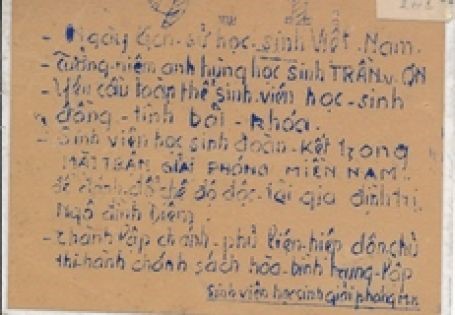 - Ngày lịch-sử học-sinh Việt-Nam.
- Tưởng-niệm anh hùng học sinh TRẦN.V.ƠN
- Yêu cầu toàn thể sinh-viên học-sinh
đồng-tình bãi-khóa.
- Sinh viên học sinh đoàn-kết trong
"MẶT TRẬN GIẢI PHÓNG MIỀN NAM"
để đánh đổ chế độ độc-tài gia đình trị
Ngô đình Diệm.
- thành lập chánh-phủ liên-hiệp dân chủ
thi hành chánh sách hòa-bình trung-lập
Sinh viên học sinh giải phóng